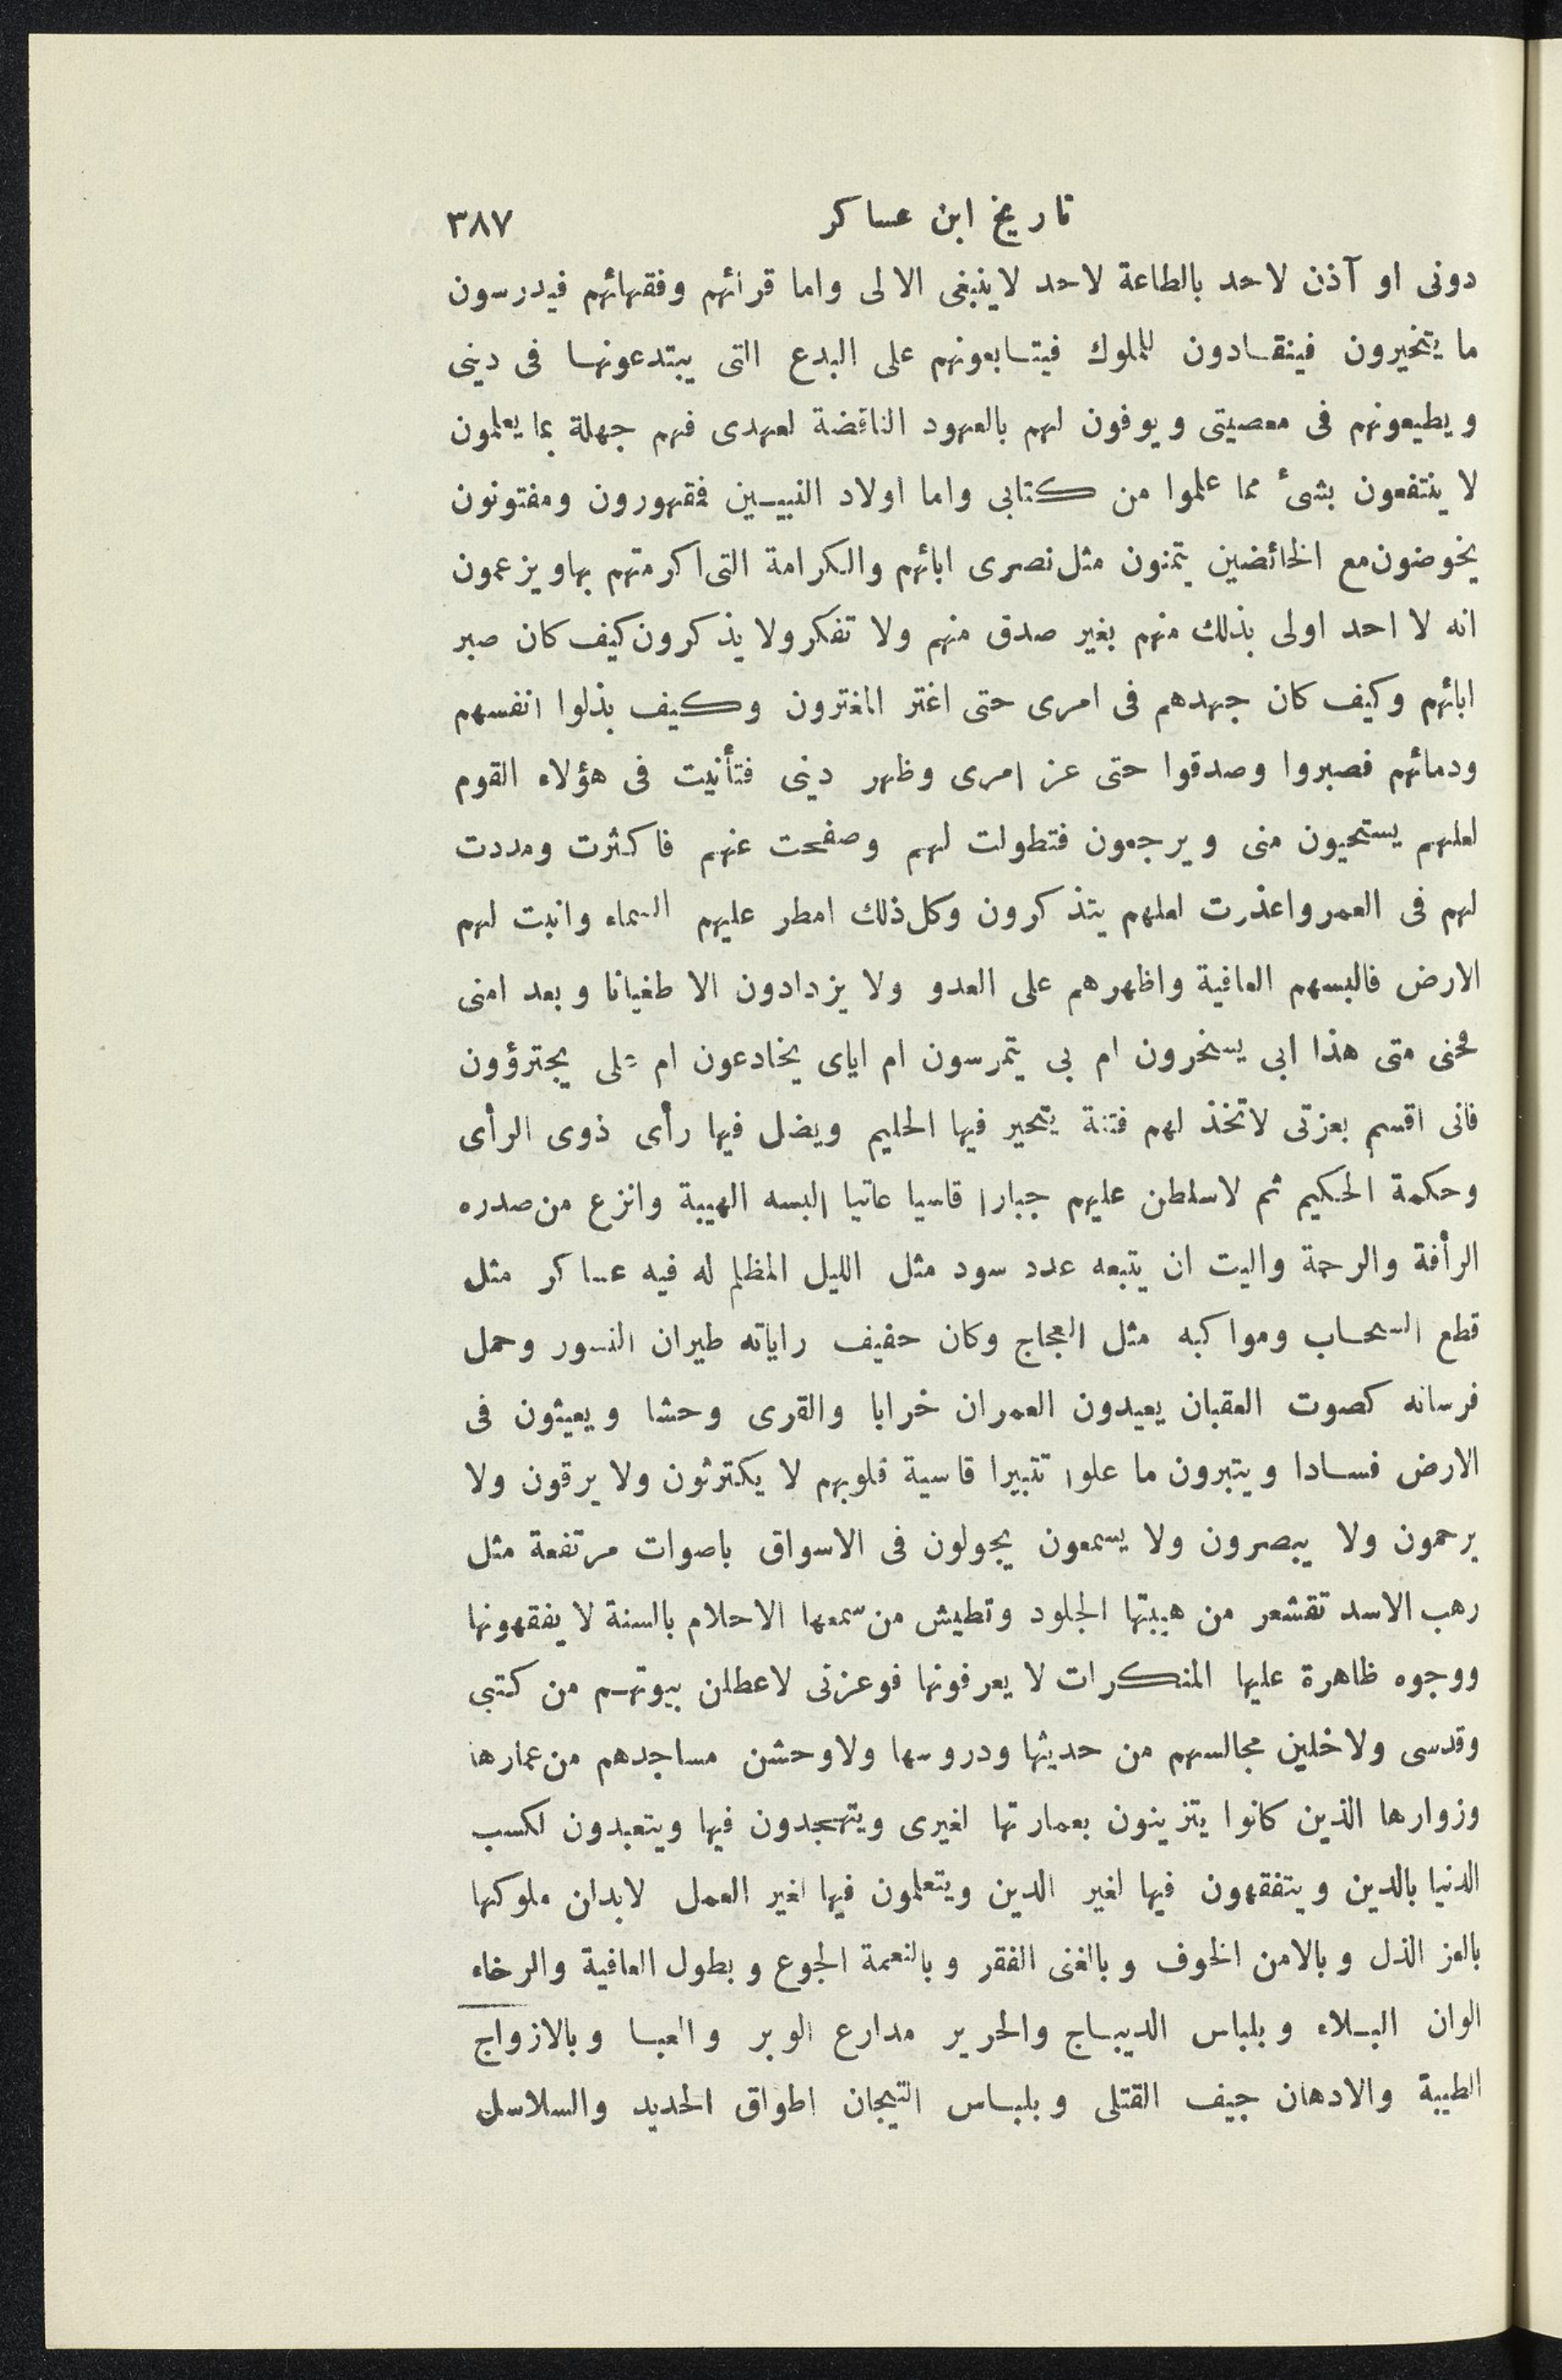 تاريخ ابن عساكر ٣٨٧
دونى او آذن لاحد بالطاعة لاحد لاينبغى الا لى واما قرائهم وفقهائهم فيدرسون
ما يتخيرون فينقادون للملوك فيتابعونهم على البدع التى يبتدعونها فى دينى
ويطيعونهم فى معصيتى ويوفون لهم بالعهود الناقضة لعهدى فهم جهلة بما يعلمون
لا ينتفعون بشئ مما علموا من كتابى واما اولاد النبيين فمقهورون ومفتونون
يخوضون مع الخائضين يتمنون مثل نصرى ابائهم والكرامة التى اكرمتهم بها ويزعمون
انه لا احد اولى بذلك منهم بغير صدق منهم ولا تفكر ولا يذكرون كيف كان صبر
ابائهم وكيف كان جهدهم فى امرى حتى اغتر المغترون وكيف بذلوا انفسهم
ودمائهم فصبروا وصدقوا حتى عز امرى وظهر دينى فتأنيت فى هؤلاء القوم
لعلهم يستحيون منى ويرجعون فتطولت لهم وصفحت عنهم فاكثرت ومددت
لهم فى العمر واعذرت لعلهم يتذكرون وكل ذلك امطر عليهم السماء وانبت لهم
الارض فالبسهم العافية واظهرهم على العدو ولا يزدادون الا طغيانا وبعد امنى
فحنى متى هذا ابى يسخرون ام بى يتمرسون ام اياى يخادعون ام على يجترؤون
فانى اقسم بعزتى لاتخذ لهم فتنة يتحير فيها الحليم ويضل فيها رأى ذوى الرأى
وحكمة الحكيم ثم لاسلطن عليهم جبارا قاسيا عاتيا البسه الهيبة وانزع من صدره
الرأفة والرحمة واليت ان يتبعه عدد سود مثل الليل المظلم له فيه عساكر مثل
قطع السحاب ومواكبه مثل العجاج وكان حفيف راياته طيران النسور وحمل
فرسانه كصوت العقبان يعيدون العمران خرابا والقرى وحشا ويعيثون فى
الارض فسادا ويتبرون ما علوا تتبيرا قاسية قلوبهم لا يكترثون ولا يرقون ولا
يرحمون ولا يبصرون ولا يسمعون يجولون فى الاسواق باصوات مرتفعة مثل
رهب الاسد تقشعر من هيبتها الجلود وتطيش من سمعها الاحلام بالسنة لا يفقهونها
ووجوه ظاهرة عليها المنكرات لا يعرفونها فوعزتى لاعطلن بيوتهم من كتبى
وقدسى ولاخلين مجالسهم من حديثها ودروسها ولاوحشن مساجدهم من عمارها
وزوارها الذين كانوا يتزينون بعمارتها لغيرى ويتهجدون فيها ويتعبدون لكسب
الدنيا بالدين ويتفقهون فيها لغير الدين ويتعلمون فيها لغير العمل لابدان ملوكها
بالعز الذل وبالامن الخوف وبالغنى الفقر وبالنعمة الجوع وبطول العافية والرخاء
الوان البلاء وبلباس الديباج والحرير مدارع الوبر والعبا وبالازواج
الطيبة والادهان جيف القتلى وبلباس التيجان اطواق الحديد والسلاسل